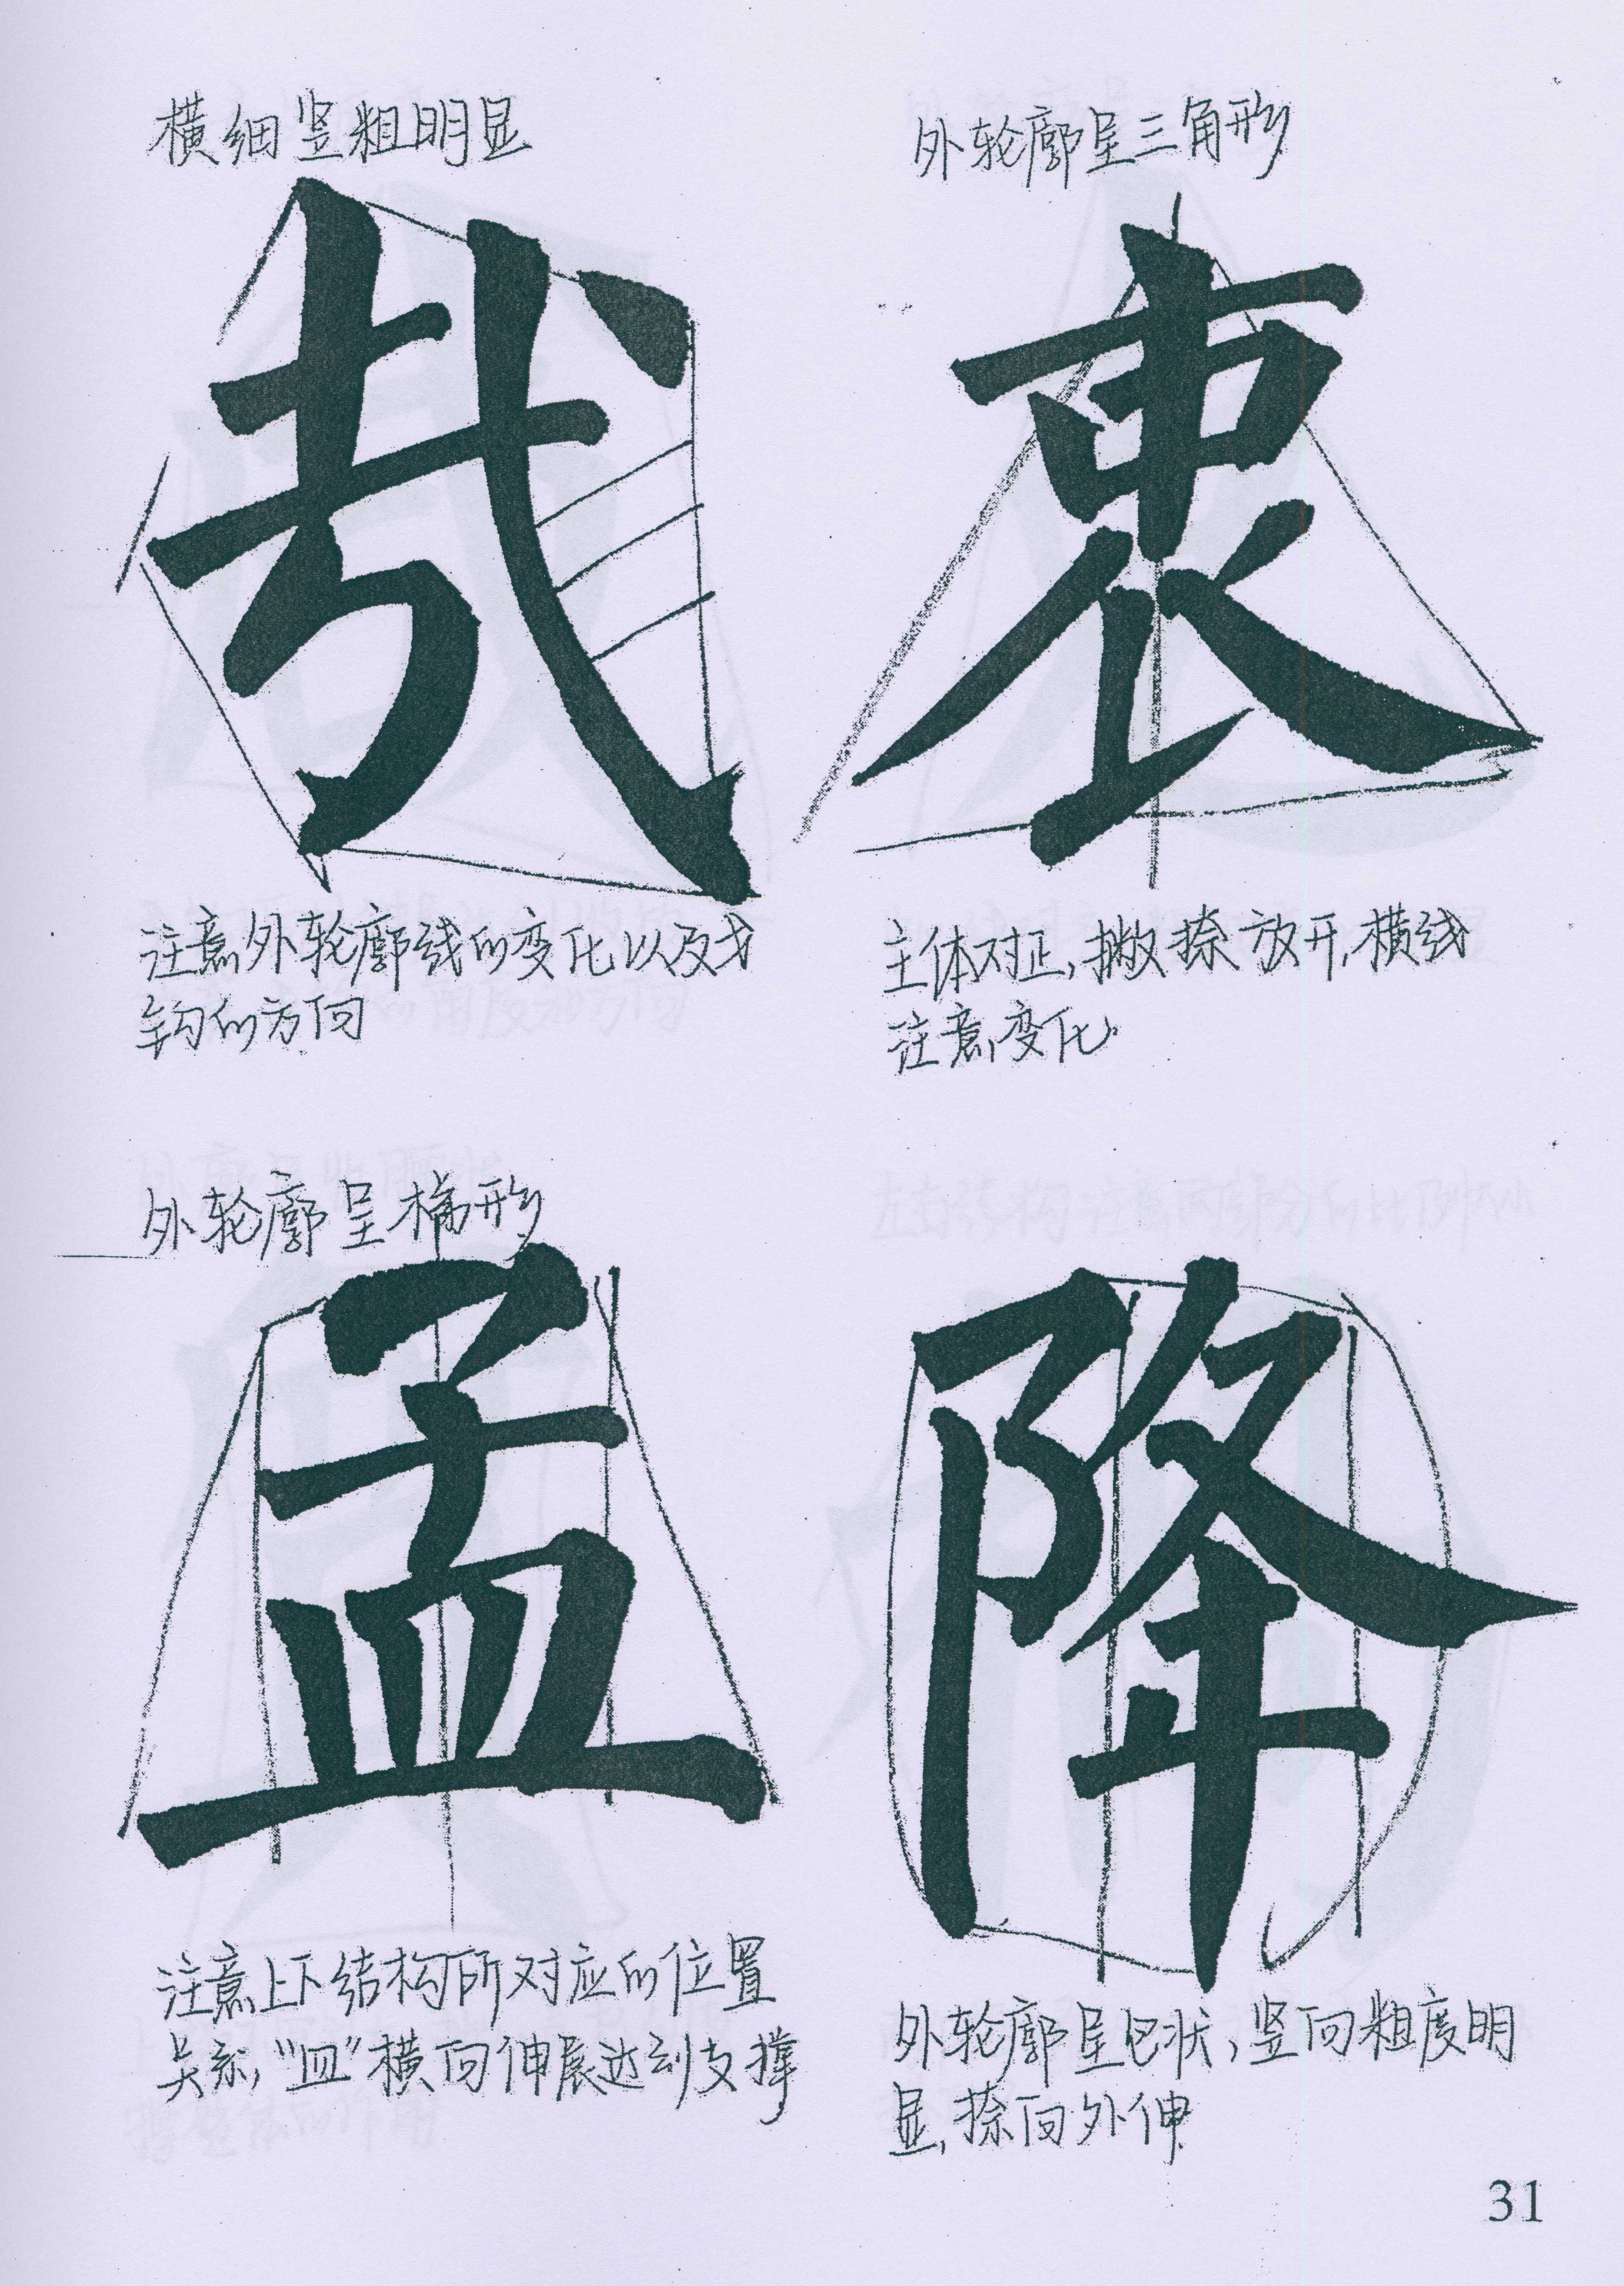 横细竖粗明显
注意外轮廓线的变化以及戈
钩的方向
外轮廓呈三角形
衷
主体对正,撇捺放开,横线
注意变化.
外轮廓呈梯形
孟
注意上下结构所对应的位置
关系,"皿"横向伸展达到支撑
降
外轮廓呈状,竖向粗度明
显,捺向外伸
31